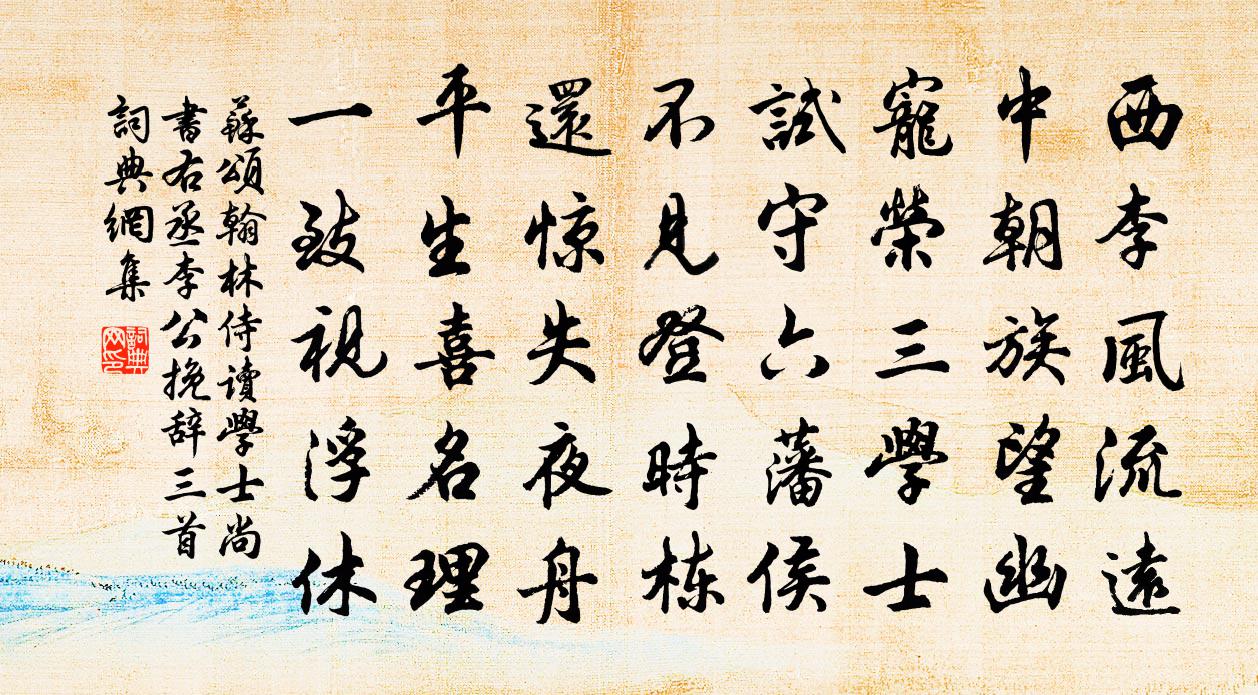 西李風流遠
中朝族望幽
寵榮三學士
試守六藩侯
不見登時栋
還惊失夜舟
平生喜名理
一致視浮休
蘇頌翰林侍讀學士尚
書右丞李公挽辞三首
詞典網集
詞典
网印